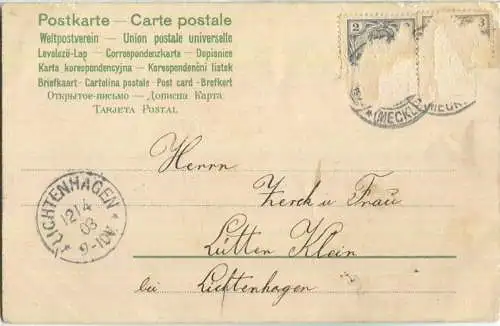 Postkarte — Carte postale
Weltpostverein — Union postale universelle
Levelező-Lap — Correspondenzkarte — Dopisnice
Karta korespondencyjna — Korespondenční listek
Briefkaart - Cartelina postale - Post card - Brefkort
Открытое-письмо — Дописна Карта
Tarjeta Postal
2
3
(MECKL
(MECK
Herrn
Zerck u Frau
Lütten Klein
bei Lichtenhagen
LICHTENHAGEN
12/4
03
9-10V.